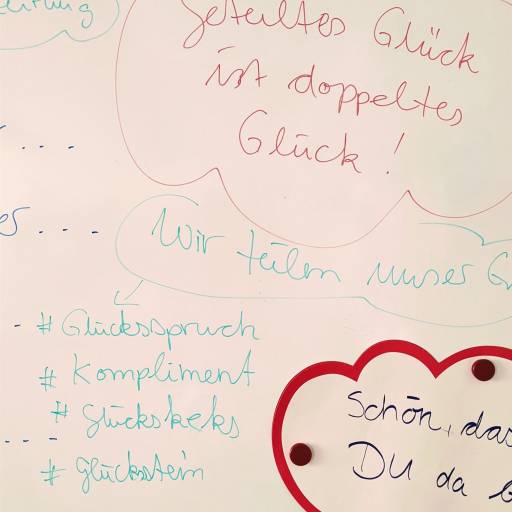 Geteiltes Glück
ist doppeltes
Glück!
Wir teilen unser
# Glücksspruch
# Kompliment
# Glückskeks
# Glückstein
Schön, das
DU da